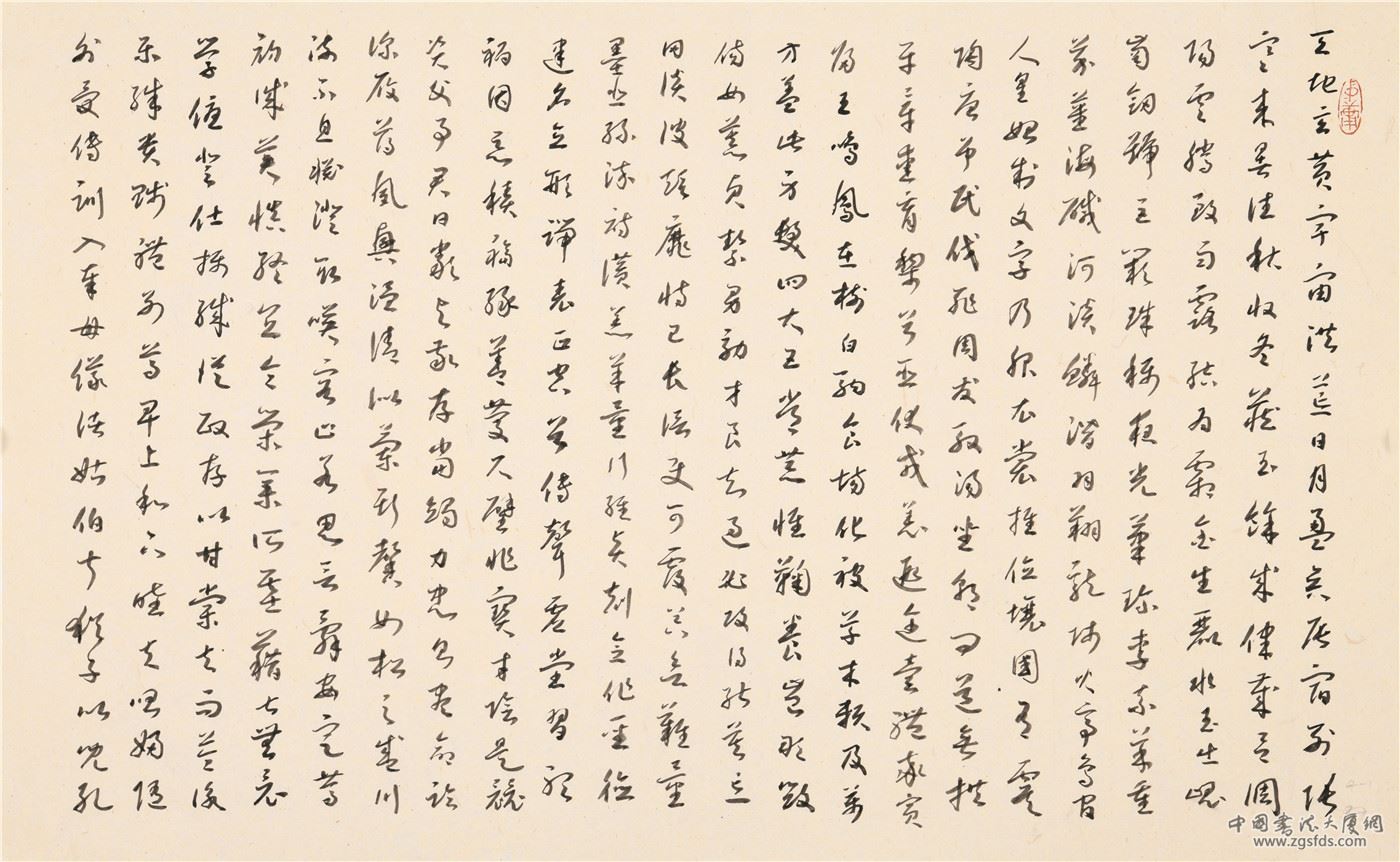 天地玄黃宇宙洪荒日月盈昃辰宿列張
寒來暑往秋收冬藏閏餘成律歲呂調
陽雲騰致雨露結為霜金生麗水玉出崐
崗劍號巨闕珠稱夜光菓珍李柰菜重
芥薑海鹹河淡鱗潛羽翔龍師火帝鳥官
人皇始制文字乃服衣裳推位讓國有虞
陶唐弔民伐罪周發殷湯坐朝問道垂拱
平章愛育黎首臣伏戎羌遐邇壹體率賓
歸王鳴鳳在樹白駒食場化被草木賴及萬
方蓋此身髮四大五常恭惟鞠養豈敢毀
傷女慕貞絜男效才良知過必改得能莫忘
罔談彼短靡恃己長信使可覆器欲難量
墨悲絲染詩讚羔羊景行維賢剋念作聖德
建名立形端表正空谷傳聲虛堂習聽
禍因惡積福緣善慶尺璧非寶寸陰是競
資父事君曰嚴與敬孝當竭力忠則盡命臨
深履薄夙興溫凊似蘭斯馨如松之盛川
流不息淵澄取暎容止若思言辭安定篤
初誠美慎終宜令榮業所基藉甚無竟
學優登仕攝職從政存以甘棠去而益詠
樂殊貴賤禮別尊卑上和下睦夫唱婦隨
外受傅訓入奉母儀諸姑伯叔猶子比兒孔
中国书法大厦網
www.zgsfds.com